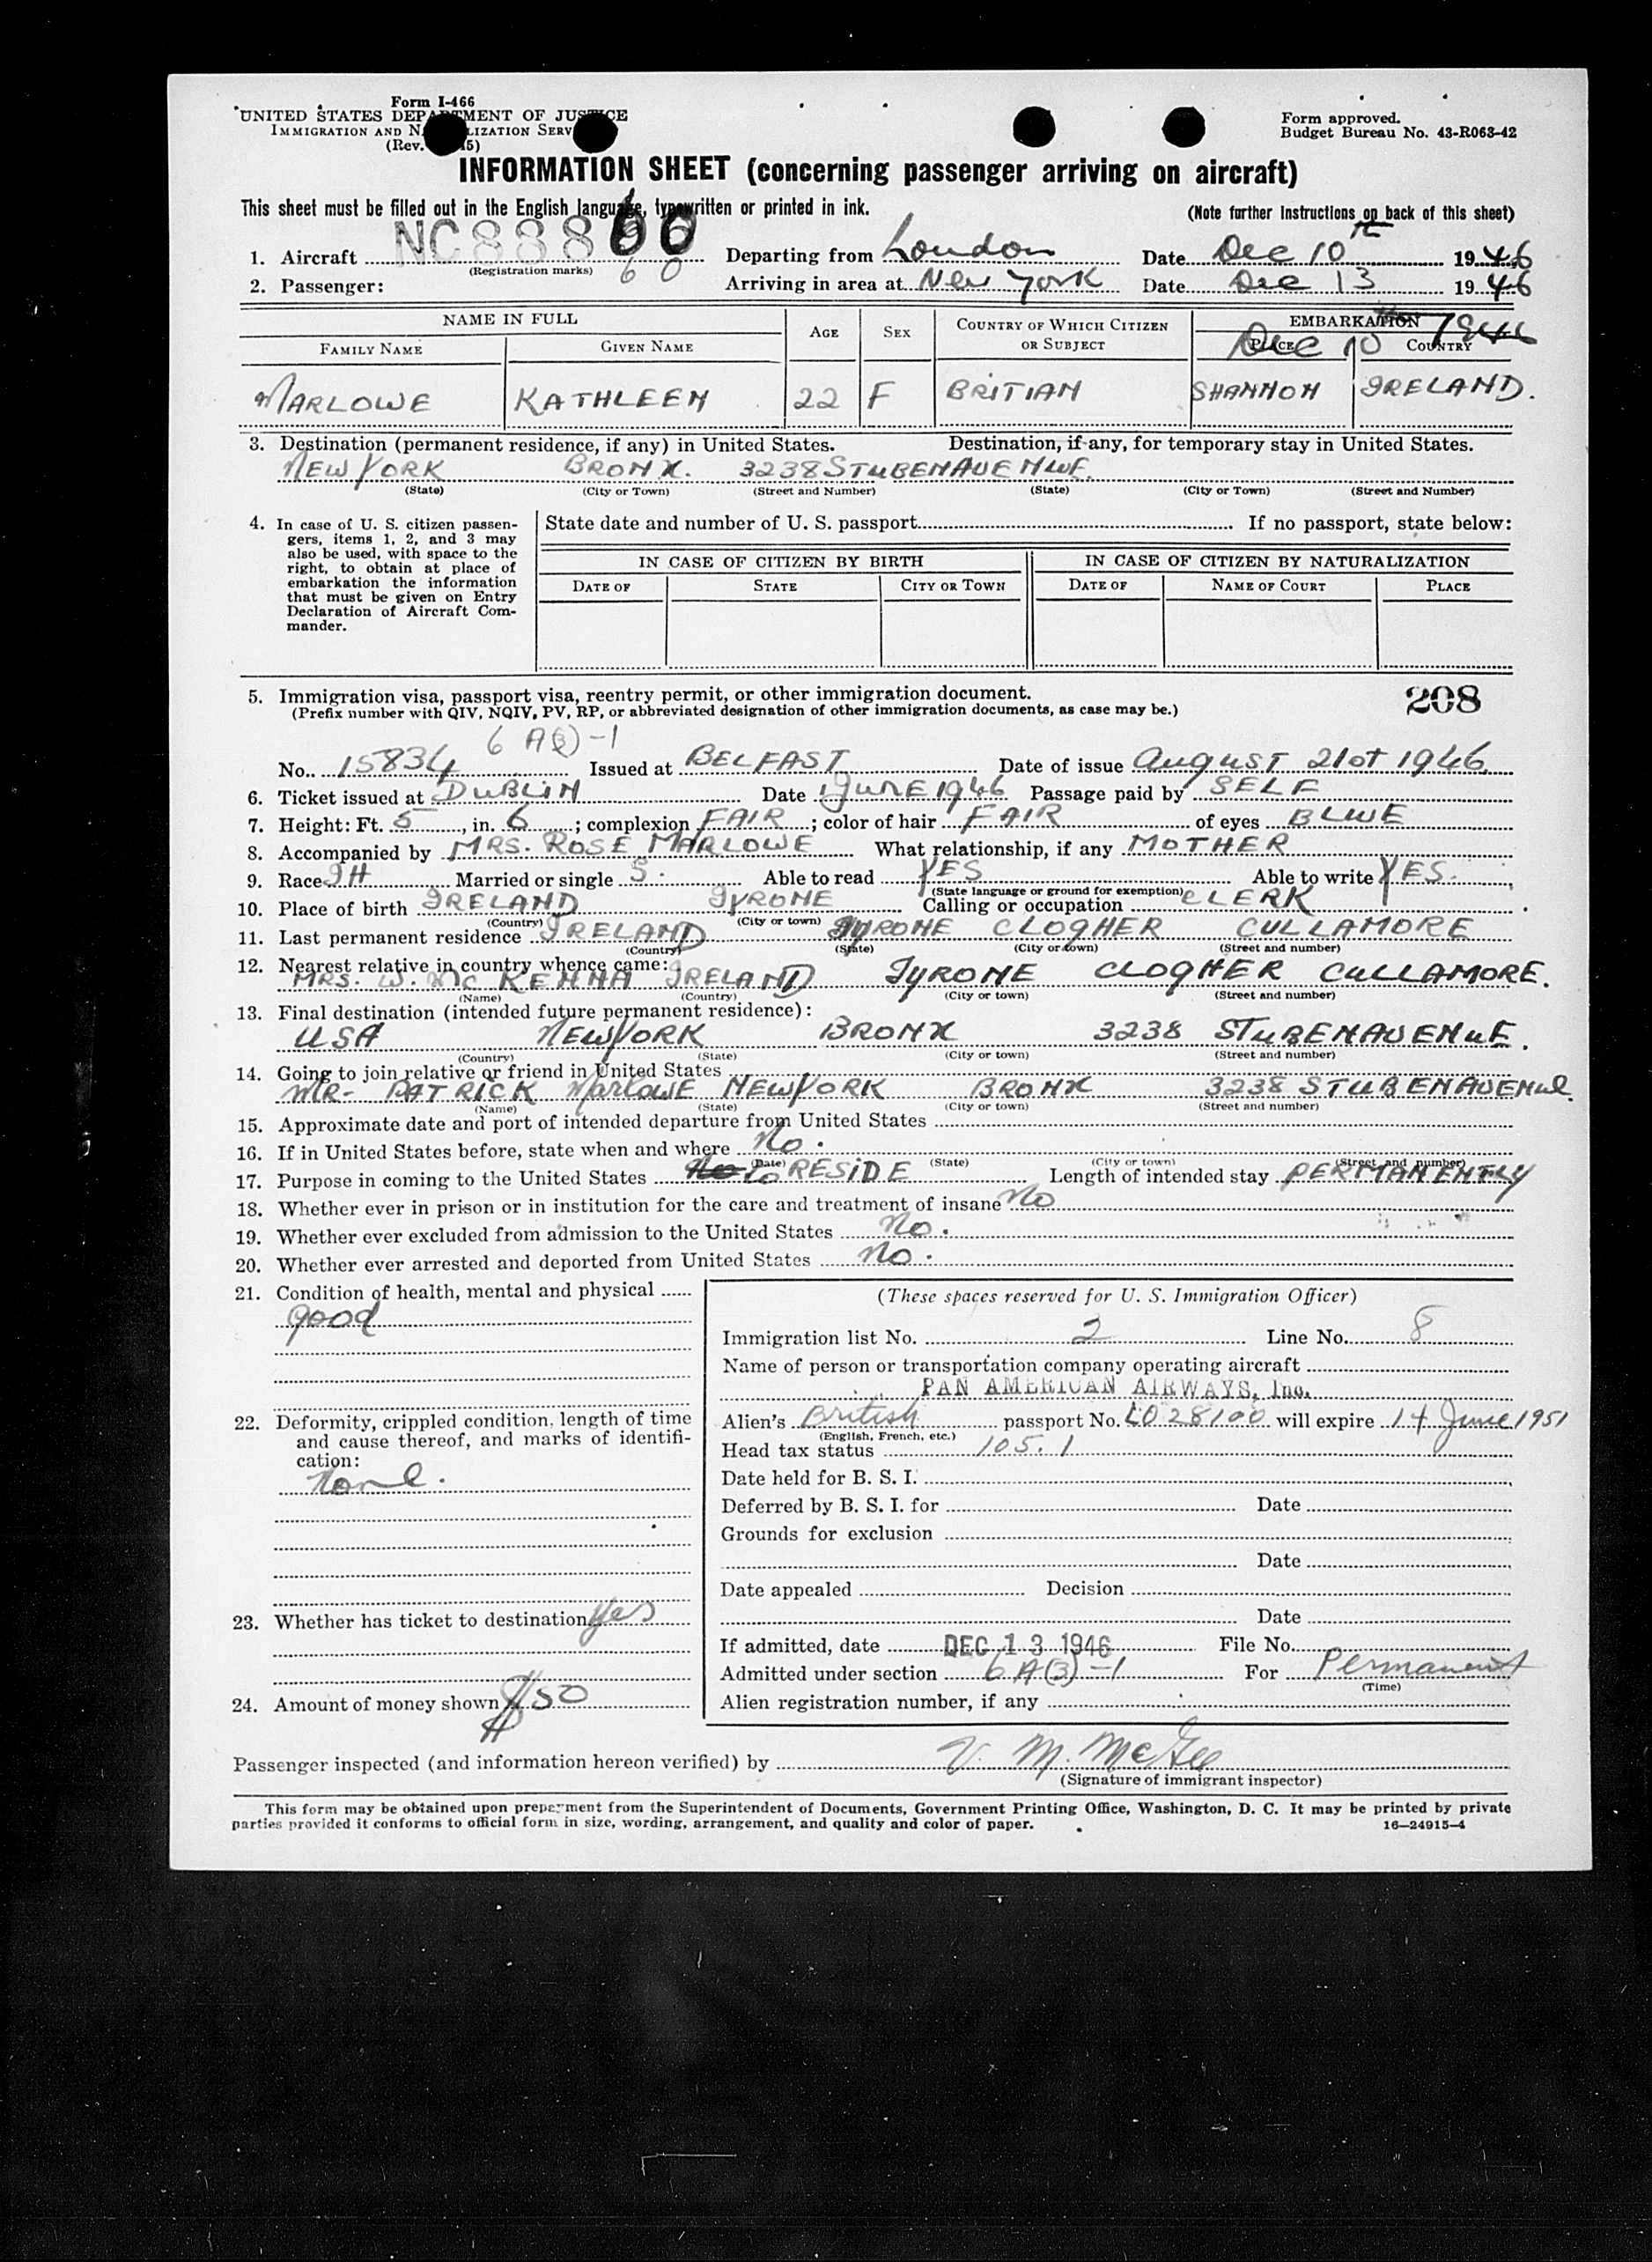 Form I-466
UNITED STATES DEPARTMENT OF JUSTICE
IMMIGRATION AND NATURALIZATION SERV
(Rev. 45)
Form approved.
Budget Bureau No. 43-R063-42
INFORMATION SHEET (concerning passenger arriving on aircraft)
This sheet must be filled out in the English language, typewritten or printed in ink.
(Note further instructions on back of this sheet)
1. Aircraft NC88860 Departing from London Date Dec 10th 1946
(Registration marks) 60
2. Passenger: Arriving in area at New York Date Dec 13 1946
NAME IN FULL AGE SEX COUNTRY OF WHICH CITIZEN OR SUBJECT EMBARKATION
FAMILY NAME GIVEN NAME PLACE COUNTRY
Dec 10 1946
MARLOWE KATHLEEN 22 F BRITIAN SHANNON IRELAND.
3. Destination (permanent residence, if any) in United States. Destination, if any, for temporary stay in United States.
NEW YORK BRONX. 3238 STUBENAVENUE.
(State) (City or Town) (Street and Number) (State) (City or Town) (Street and Number)
4. In case of U. S. citizen passengers, items 1, 2, and 3 may also be used, with space to the right, to obtain at place of embarkation the information that must be given on Entry Declaration of Aircraft Commander.
State date and number of U. S. passport If no passport, state below:
IN CASE OF CITIZEN BY BIRTH IN CASE OF CITIZEN BY NATURALIZATION
DATE OF STATE CITY OR TOWN DATE OF NAME OF COURT PLACE
5. Immigration visa, passport visa, reentry permit, or other immigration document. 208
(Prefix number with QIV, NQIV, PV, RP, or abbreviated designation of other immigration documents, as case may be.)
6 A(3)-1
No. 15834 Issued at BELFAST Date of issue AUGUST 21st 1946
6. Ticket issued at DUBLIN Date JUNE 1946 Passage paid by SELF
7. Height: Ft. 5, in. 6; complexion FAIR; color of hair FAIR of eyes BLUE
8. Accompanied by MRS. ROSE MARLOWE What relationship, if any MOTHER
9. Race IH Married or single S. Able to read YES Able to write YES.
(State language or ground for exemption)
10. Place of birth IRELAND TYRONE Calling or occupation CLERK
(Country) (City or town)
11. Last permanent residence IRELAND TYRONE CLOGHER CULLAMORE
(Country) (State) (City or town) (Street and number)
12. Nearest relative in country whence came:
MRS. W. Mc KENNA IRELAND TYRONE CLOGHER CULLAMORE.
(Name) (Country) (City or town) (Street and number)
13. Final destination (intended future permanent residence):
USA NEW YORK BRONX 3238 STUBENAVENUE.
(Country) (State) (City or town) (Street and number)
14. Going to join relative or friend in United States
MR- PATRICK Marlowe NEW YORK BRONX 3238 STUBENAVENUE
(Name) (State) (City or town) (Street and number)
15. Approximate date and port of intended departure from United States
16. If in United States before, state when and where No.
(Date) (State) (City or town) (Street and number)
17. Purpose in coming to the United States to RESIDE Length of intended stay PERMANENTLY
18. Whether ever in prison or in institution for the care and treatment of insane No
19. Whether ever excluded from admission to the United States No.
20. Whether ever arrested and deported from United States No.
21. Condition of health, mental and physical
good
22. Deformity, crippled condition, length of time and cause thereof, and marks of identification:
None.
23. Whether has ticket to destination Yes
24. Amount of money shown $50
(These spaces reserved for U. S. Immigration Officer)
Immigration list No. 2 Line No. 8
Name of person or transportation company operating aircraft
PAN AMERICAN AIRWAYS, Inc.
Alien's British passport No. LO 28100 will expire 14 June 1951
(English, French, etc.)
Head tax status 105.1
Date held for B. S. I.
Deferred by B. S. I. for Date
Grounds for exclusion
Date
Date appealed Decision
Date
If admitted, date DEC 13 1946 File No.
Admitted under section 6 A(3)-1 For Permanent
(Time)
Alien registration number, if any
Passenger inspected (and information hereon verified) by V. M. McGee
(Signature of immigrant inspector)
This form may be obtained upon prepayment from the Superintendent of Documents, Government Printing Office, Washington, D. C. It may be printed by private
parties provided it conforms to official form in size, wording, arrangement, and quality and color of paper. 16—24915-4